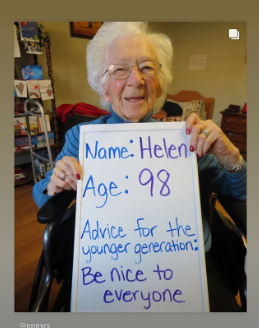 Name: Helen
Age: 98
Advice for the
younger generation:
Be nice to
everyone.
@enews